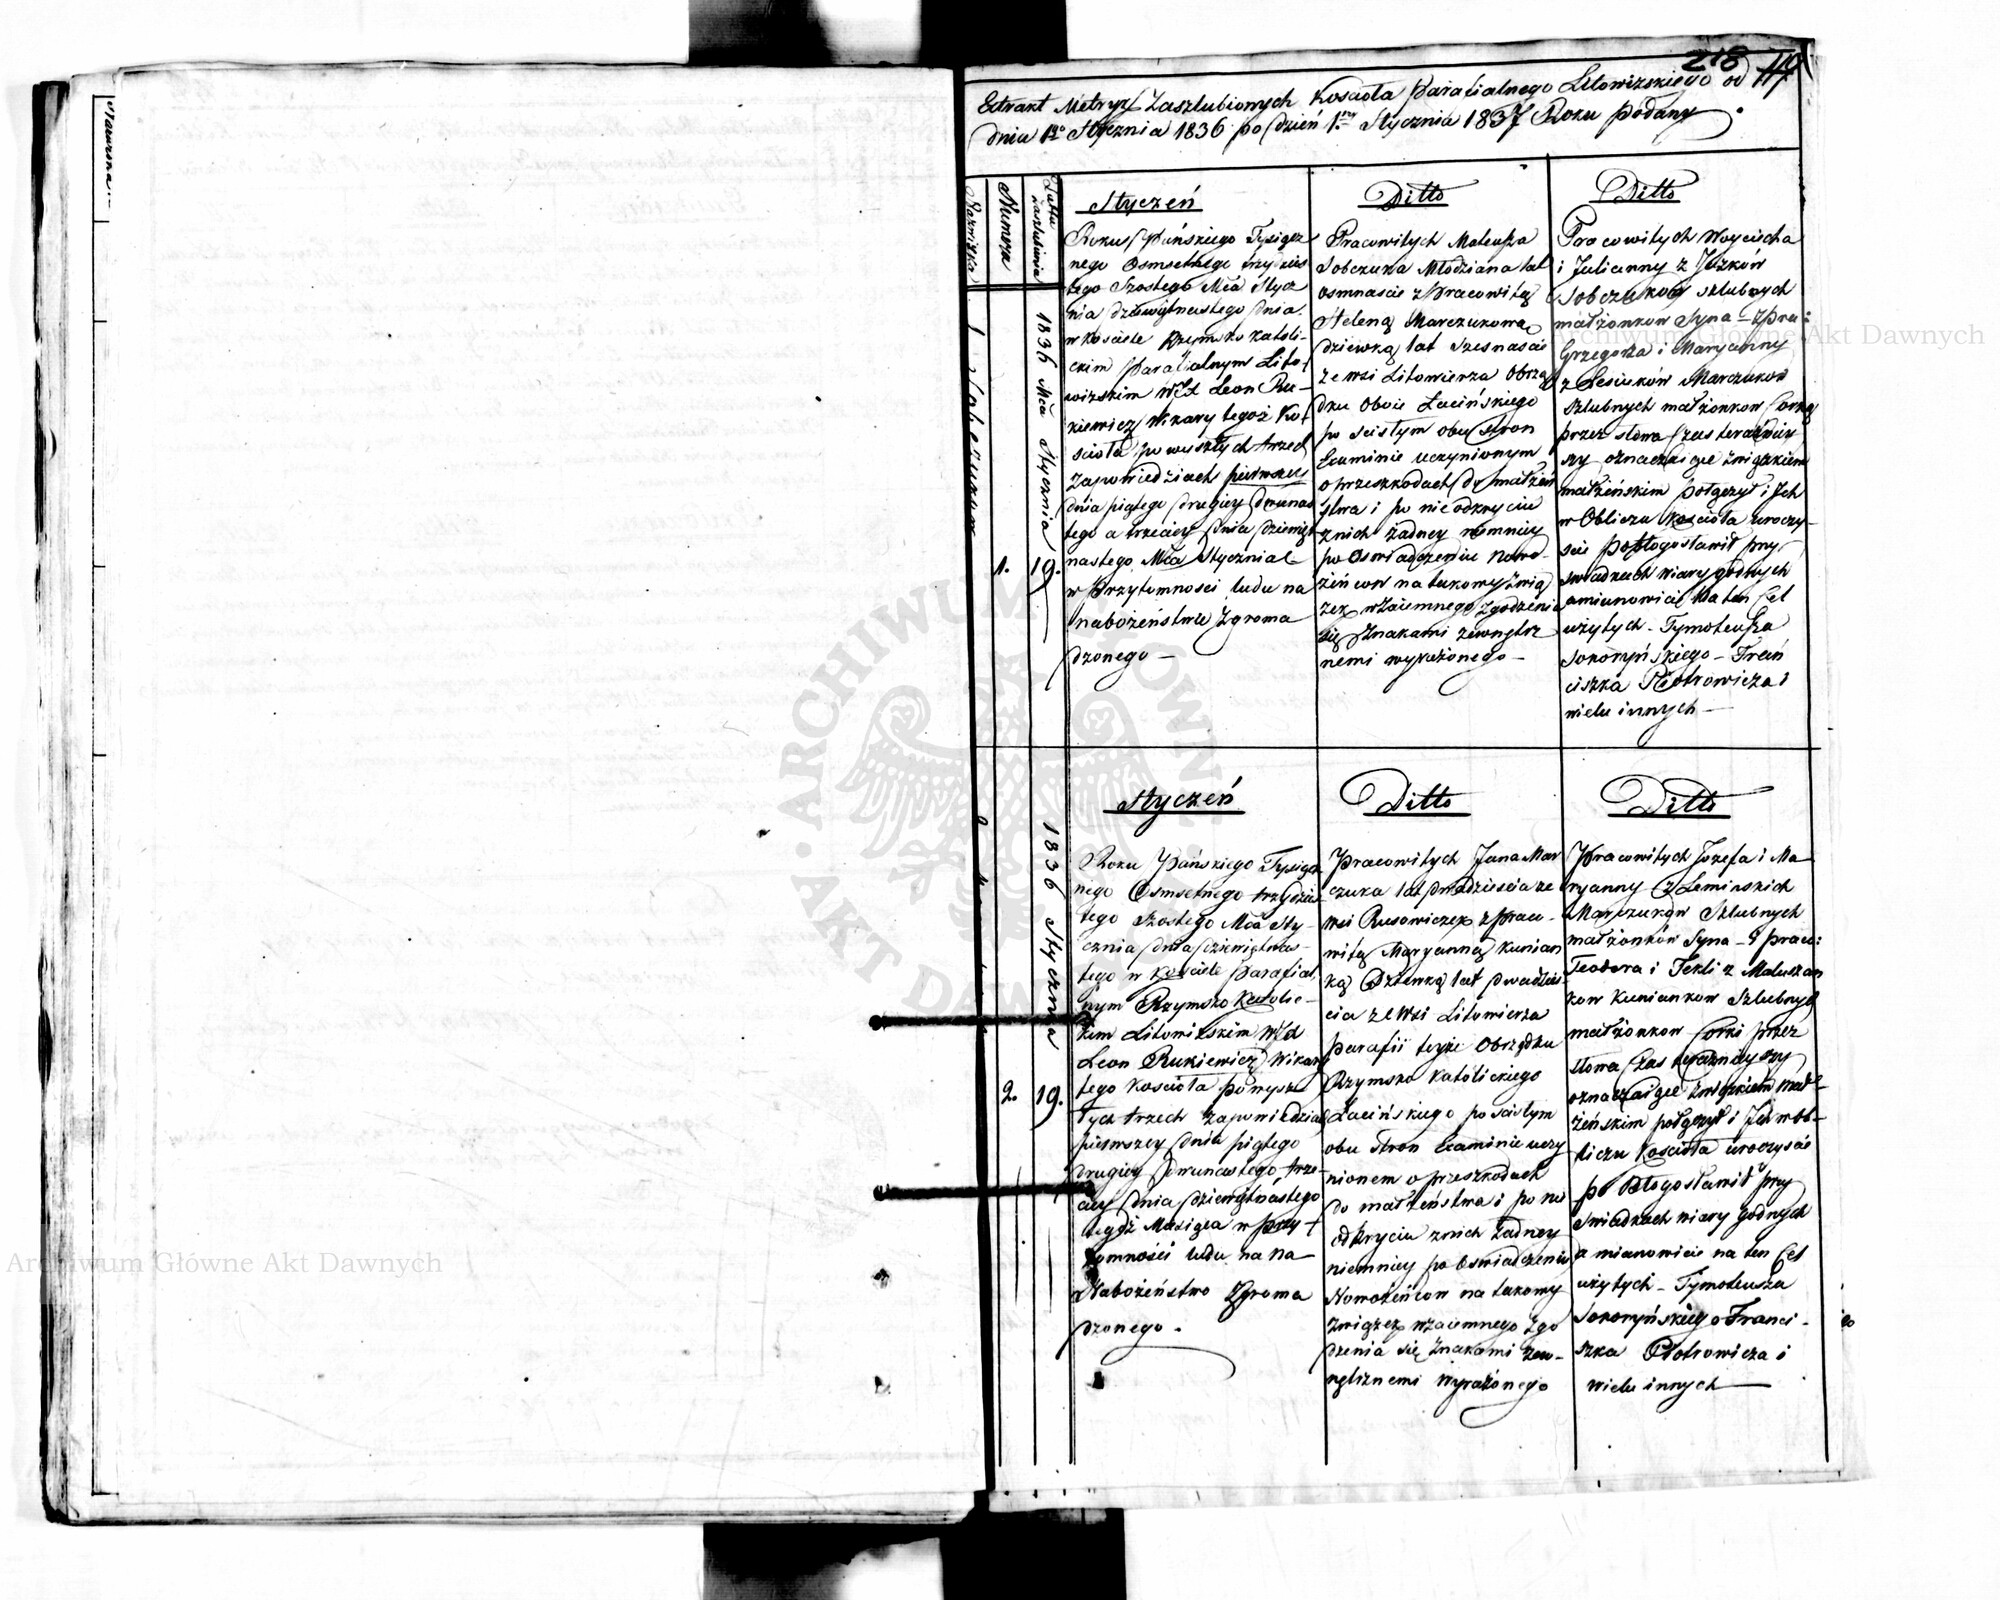 218
Extrakt Metryk Zaszlubionych Koscioła Parafialnego Litowizskiego od
dnia 1go Stycznia 1836 po dzień 1. Stycznia 1837 Roku podany
Numera
Data zaszlubienia
Styczeń
Roku Pańskiego Tysiącz
nego Osmsetnego trzydzies
tego Szostego Mca Stycz
nia dziewiętnastego dnia
w kosciele Rzymsko katoli-
ckim Parafialnym Lito-
wizskim WX Leon Ru-
kiewicz Wikary tegoż Ko-
scioła po wyszłych trzech
zapowiedziach pierwszey
dnia piątego drugiey dwunas
tego a trzeciey dnia dziewięt
nastego Mca Stycznia
w Przytomnosci ludu na
nabożeństwie zgroma
dzonego –
1836 Mca Stycznia
1.
19.
Ditto
Pracowitych Mateusza
Sobczuka Młodziana lat
osmnascie z Pracowitą
Heleną Marczukową
dziewką lat szesnascie
z wsi Litowierza Obrzą
dku Oboie Łacińskiego
po scisłym obu stron
Examinie uczynionym
o przeszkodach do małżeń
stwa i po nieodkryciu
z nich żadney niemniey
po Oswiadczeniu Nowo-
żeńcow na takowy zwią
zek wzaiemnego zgodzenia
się znakami zewnętrz
nemi wyrażonego –
Ditto
Pracowitych Woyciecha
i Julianny z Juzków
Sobczukow szlubnych
małżonkow Syna – z Prac:
Grzegorza i Maryanny
z Lesiuków Marczukow
szlubnych małżonkow Corką
przez słowa czas teraznіey
szy oznaczaiące związkiem
małżeńskim połączył i Ich
w Obliczu Kościoła uroczy-
scie pobłogosławił przy
swiadkach wiary godnych
a mianowicie na ten Cel
użytych – Tymoteusza
Sokoryńskiego – Fran
ciszka Piotrowicza i
wielu innych –
Styczeń
Roku Pańskiego Tysiącz
nego Osmsetnego trzydzies
tego Szostego Mca Sty-
cznia dnia dziewiętnas-
tego w kosciele Parafial
nym Rzymsko Katolic-
kim Litowizskim WX
Leon Rukiewicz Wikary
tego Koscioła po wysz
łych trzech zapowiedziach
pierwszey dnia piątego
drugiey dwunastego trze-
ciey dnia dziewiętnastego
tegoż Miesiąca w przy
tomności ludu na na
Nabożeństwo zgroma
dzonego.
1836 Stycznia
2.
19.
Ditto
Pracowitych Jana Mar
czuka lat dwadziescia ze
wsi Rusowiczek z Praco-
witą Maryanną Kunian
ką Dziewką lat dwadzies-
cia z wsi Litowierza
parafii teyże Obrządku
Rzymsko Katolickiego
Łacińskiego po scisłym
obu stron Examinie uczy
nionem o przeszkodach
do małżeństwa i po nie
odkryciu z nich żadney
niemniey po Oswiadczeniu
Nowożeńcow na takowy
związek wzaiemnego zgo
dzenia się znakami zew-
nętrznemi wyrażonego
Ditto
Pracowitych Jozefa i Ma-
ryanny z Leminskich
Marczukow Szlubnych
małżonków Syna – z Praco:
Teodora i Tekli z Matuszan
kow Kuniankow Szlubnych
małżonkow Corki przez
słowa Czas teraznieyszy
oznaczaiące związkiem mał-
żeńskim połączył i Ich w Ob-
liczu Kościoła uroczyscie
pobłogosławił przy
Swiadkach wiary godnych
a mianowicie na ten Cel
użytych – Tymoteusza
Sokoryńskiego Franci-
szka Piotrowicza i
wielu innych –
Archiwum Główne Akt Dawnych
Archiwum Główne Akt Dawnych